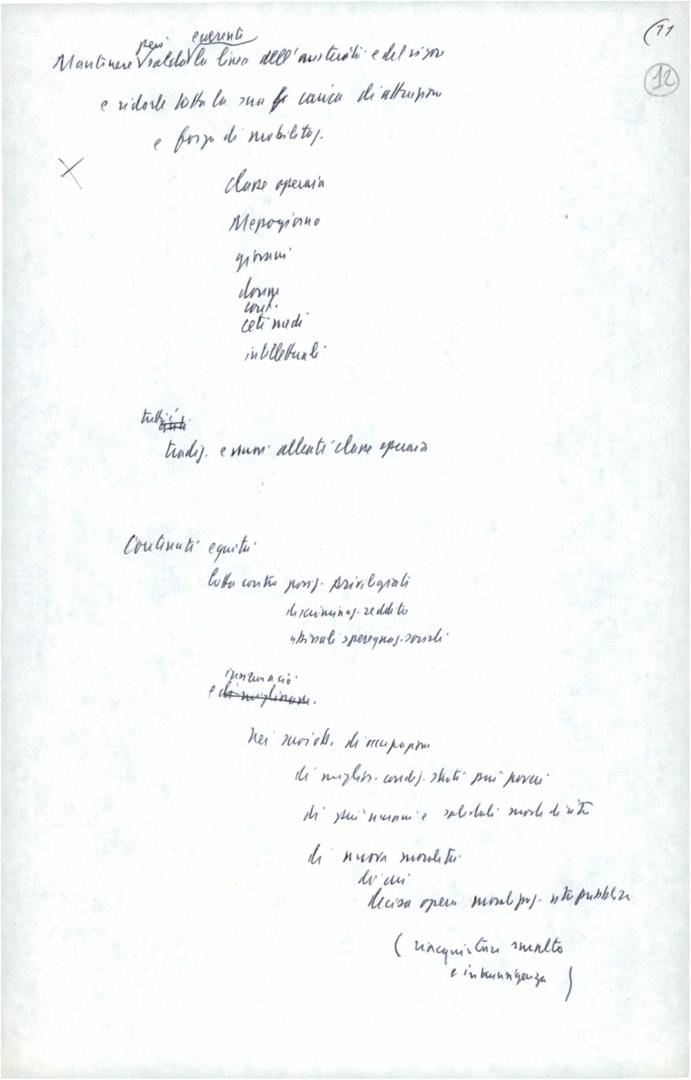 (11
12
però coerente
Mantenere salda la linea dell'austerità e del rigore
e ridarle tutta la sua carica di attrazione
e forza di mobilitaz.
X
classe operaia
Mezzogiorno
giovani
donne
cont.
ceti medi
intellettuali
tutti i
tradiz. e nuovi alleati classe operaia
Contenuti equità
lotta contro posiz. privilegiati
discriminaz. reddito
abissali sperequaz. sociali
insieme a ciò
e di migliorare.
di occupazione
di miglior. condiz. strati più poveri
di più umani e solidali modi di vita
di nuova moralità
di cui
decisa opera moralizzaz. vita pubblica
(riacquistare smalto
e intransigenza)